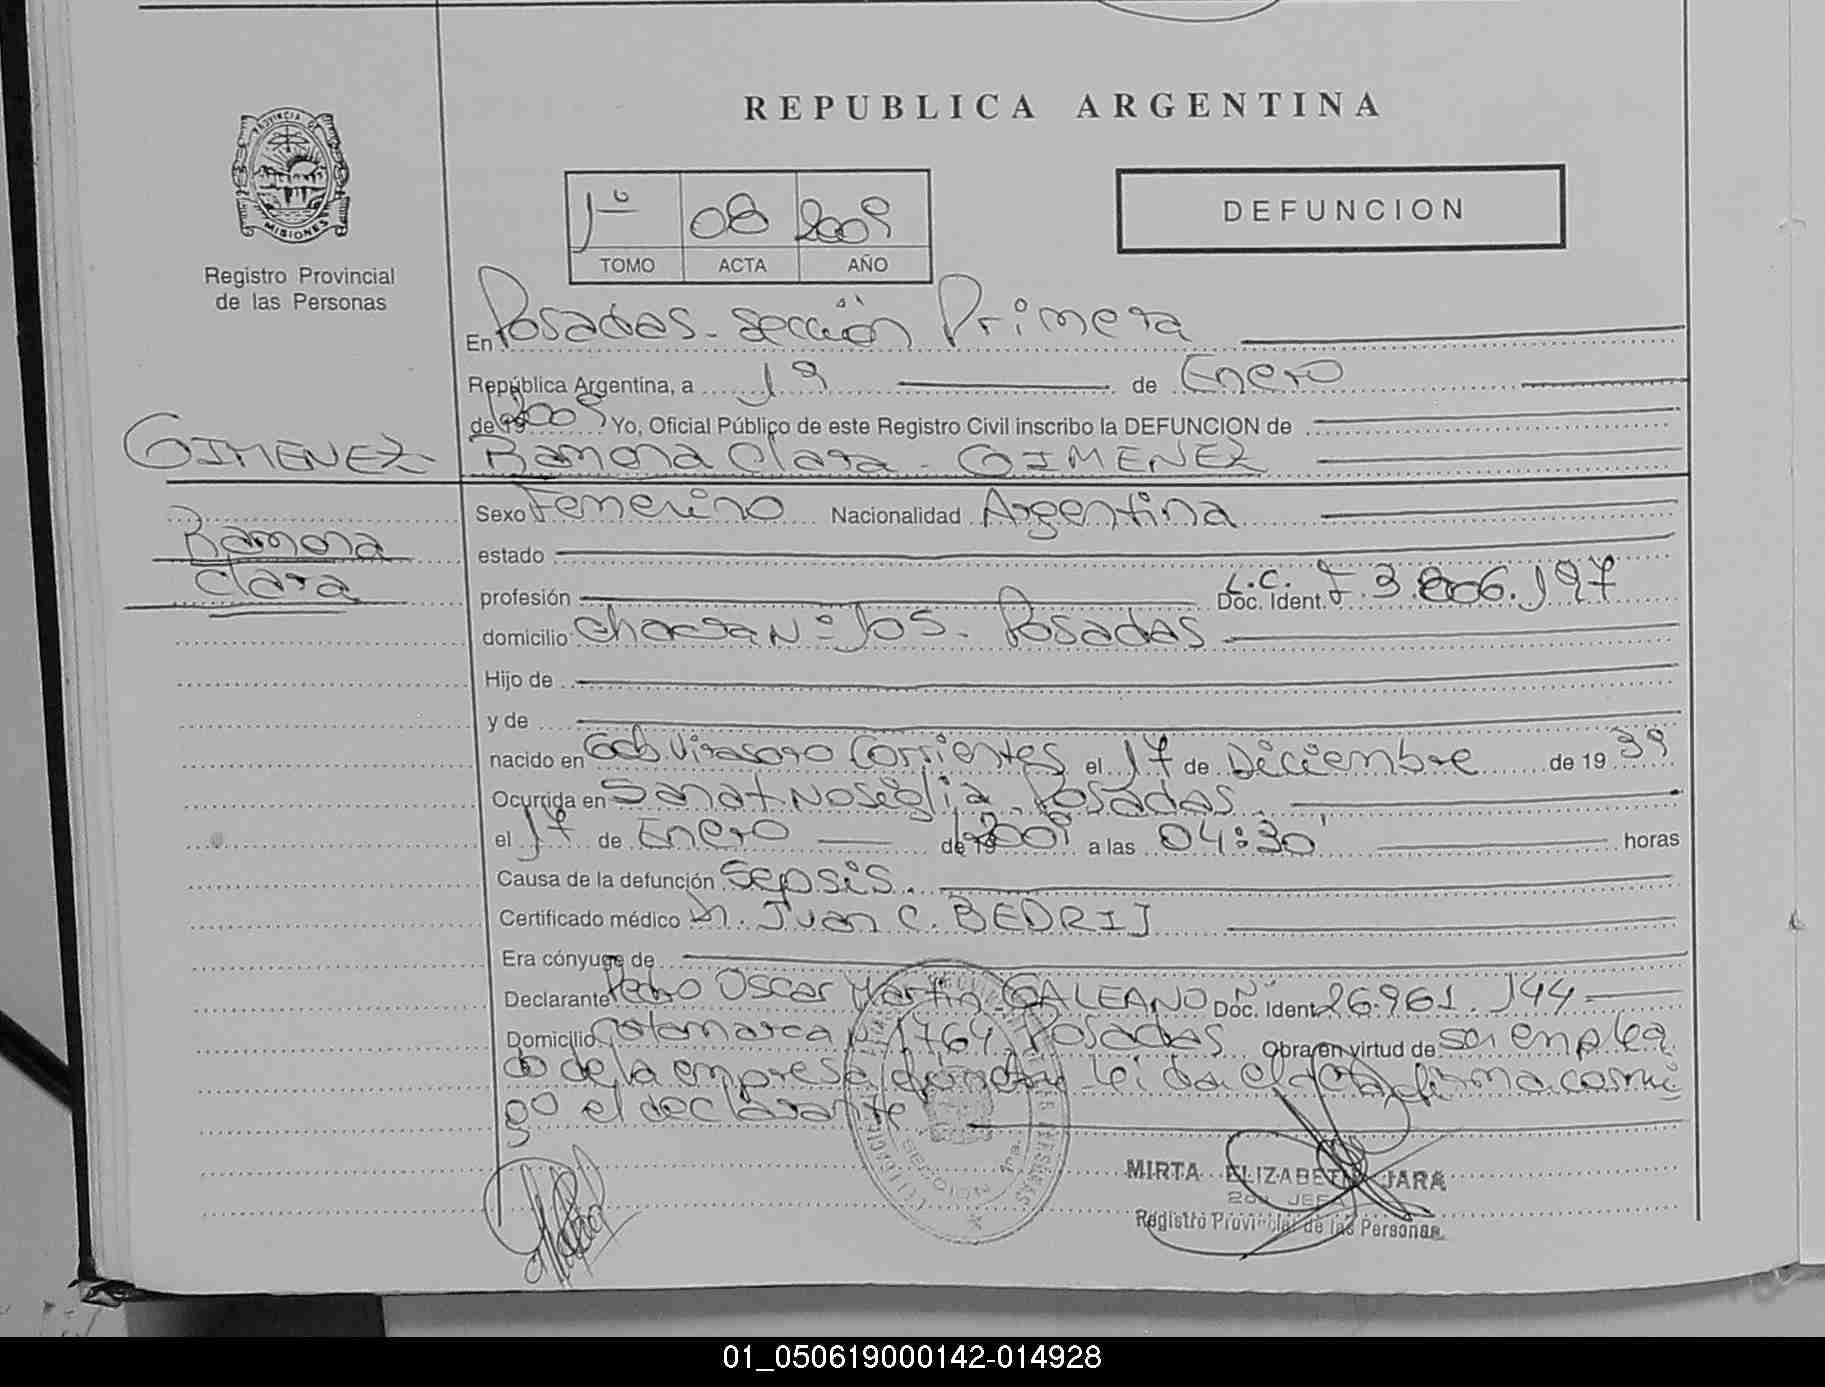 REPUBLICA ARGENTINA
PROVINCIA DE
MISIONES
Registro Provincial
de las Personas
1º 08 2009
TOMO ACTA AÑO
DEFUNCION
En Posadas - sección Primera
República Argentina, a 19 de Enero
de 19 2009 Yo, Oficial Público de este Registro Civil inscribo la DEFUNCION de
GIMENEZ Ramona Clara - GIMENEZ
Ramona
Clara
Sexo Femenino Nacionalidad Argentina
estado
profesión L.C. Doc. Ident. F 3.806.197
domicilio Chacra Nº 105 - Posadas
Hijo de
y de
nacido en Gob Virasoro Corrientes el 17 de Diciembre de 19 39
Ocurrida en Sanat Noseglia - Posadas
el 17 de Enero de 19 2009 a las 04:30' horas
Causa de la defunción Sepsis.
Certificado médico Dr. Juan C. BEDRIJ
Era cónyuge de
Declarante Pedro Oscar Martin GALEANO Doc. Ident. Nº 26.961.144
Domicilio Catamarca Nº 1764 Posadas Obra en virtud de ser emplea
do de la empresa leida el acta firma conmi
go el declarante
SECCION 1ra.
MIRTA ELIZABETH JARA
2do JEFE
Registro Provincial de las Personas
01_050619000142-014928